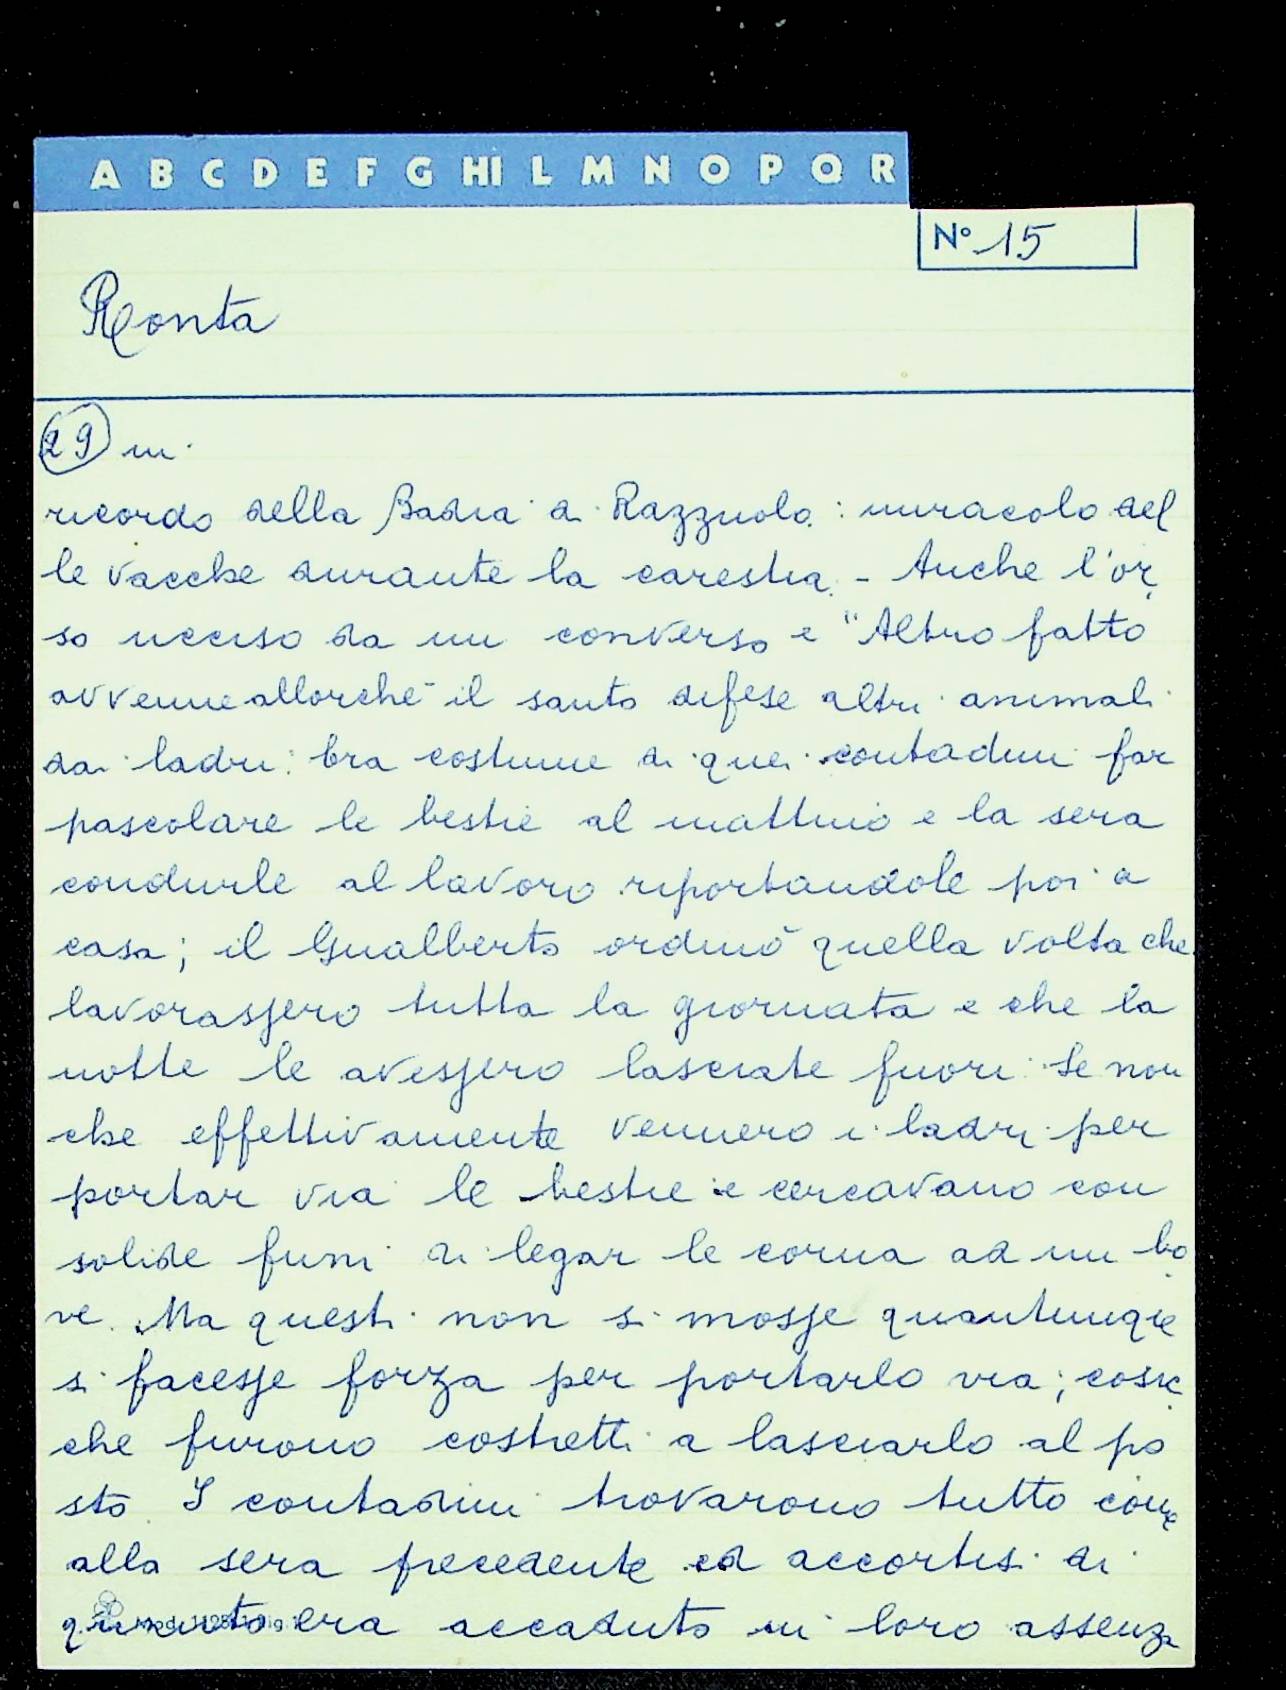 A B C D E F G HI L M N O P Q R
N° 15
Ronta
29 in
ricordo della Badia di Razzuolo: miracolo del
le vacche durante la carestia. - Anche l'or
so ucciso da un converso e "Altro fatto
avvenne allorchè il santo difese altri animali
dai ladri: Era costume di quei contadini far
pascolare le bestie al mattino e la sera
condurle al lavoro riportandole poi a
casa; il Gualberto ordinò quella volta che
lavorassero tutta la giornata e che la
notte le avessero lasciate fuori. Se non
che effettivamente vennero i ladri per
portar via le bestie e cercavano con
solide funi di legar le corna ad un bo
ve. Ma questi non si mosse quantunque
si facesse forza per portarlo via; cosic
che furono costretti a lasciarlo al po
sto. I contadini trovarono tutto come
alla sera precedente ed accortisi di
quanto era accaduto in loro assenza